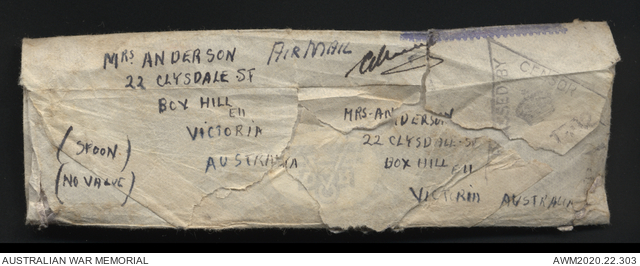 MRS ANDERSON
22 CLYSDALE ST
BOX HILL
E11
VICTORIA
AUSTRALIA
AIR MAIL
(SPOON)
(NO VALUE)
MRS. ANDERSON
22 CLYSDALE ST
BOX HILL
E11
VICTORIA AUSTRALIA
PASSED BY
CENSOR
AUSTRALIAN WAR MEMORIAL
AWM2020.22.303